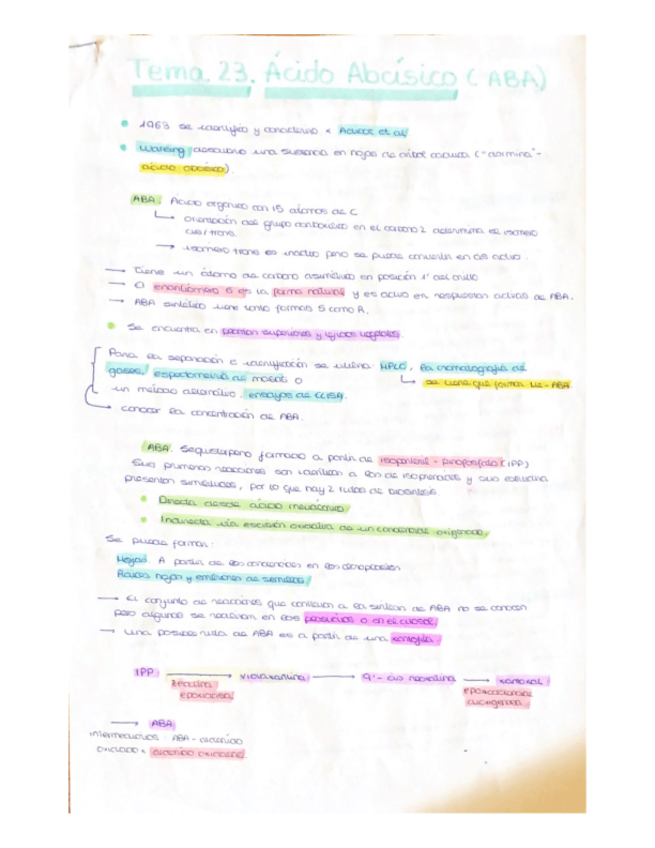 Tema 23. Ácido Abcísico (ABA)
1963 se identificó y caracterizó x Adicot et al
Wareing descubrió una sustancia en hojas de árbol caduca ("dormina"-
ácido abcísico).
ABA: Ácido orgánico con 15 átomos de C
orientación del grupo carboxílico en el carbono 2 determina el isómero
cis/trans.
isómero trans es inactivo pero se puede convertir en cis activo.
Tiene un átomo de carbono asimétrico en posición 1' del anillo
El enantiómero S es la forma natural y es activo en respuestas activas de ABA.
ABA sintético tiene tanto formas S como R.
Se encuentra en plantas superiores y tejidos vegetales.
Para la separación e identificación se utiliza: HPLC, la cromatografía de
gases, espectometría de masas o
se tiene que formar Me-ABA.
un método alternativo: ensayos de ELISA.
conocer la concentración de ABA.
ABA. Sesquiterpeno formado a partir de isopentenil-pirofosfato (IPP)
Sus primeras reacciones son idénticas a las de isoprenoides y sus estructura
presentan similitudes, por lo que hay 2 rutas de biosíntesis
Directa desde ácido mevalónico
Indirecta vía escisión oxidativa de un carotenoide oxigenado.
Se puede formar:
Hojas. A partir de los carotenoides en los cloroplastos
Raíces, hojas y embriones de semillas
El conjunto de reacciones que conllevan a la síntesis de ABA no se conocen
pero algunas se realizan en los plastidios o en el citosol.
Una posible ruta de ABA es a partir de una xantofila.
IPP → violaxantina → 9'-cis neoxatina → xantoxal
zeaxantina
epoxidasa
ABA
intermediarios: ABA-aldehído
oxidado x aldehído oxidasa.